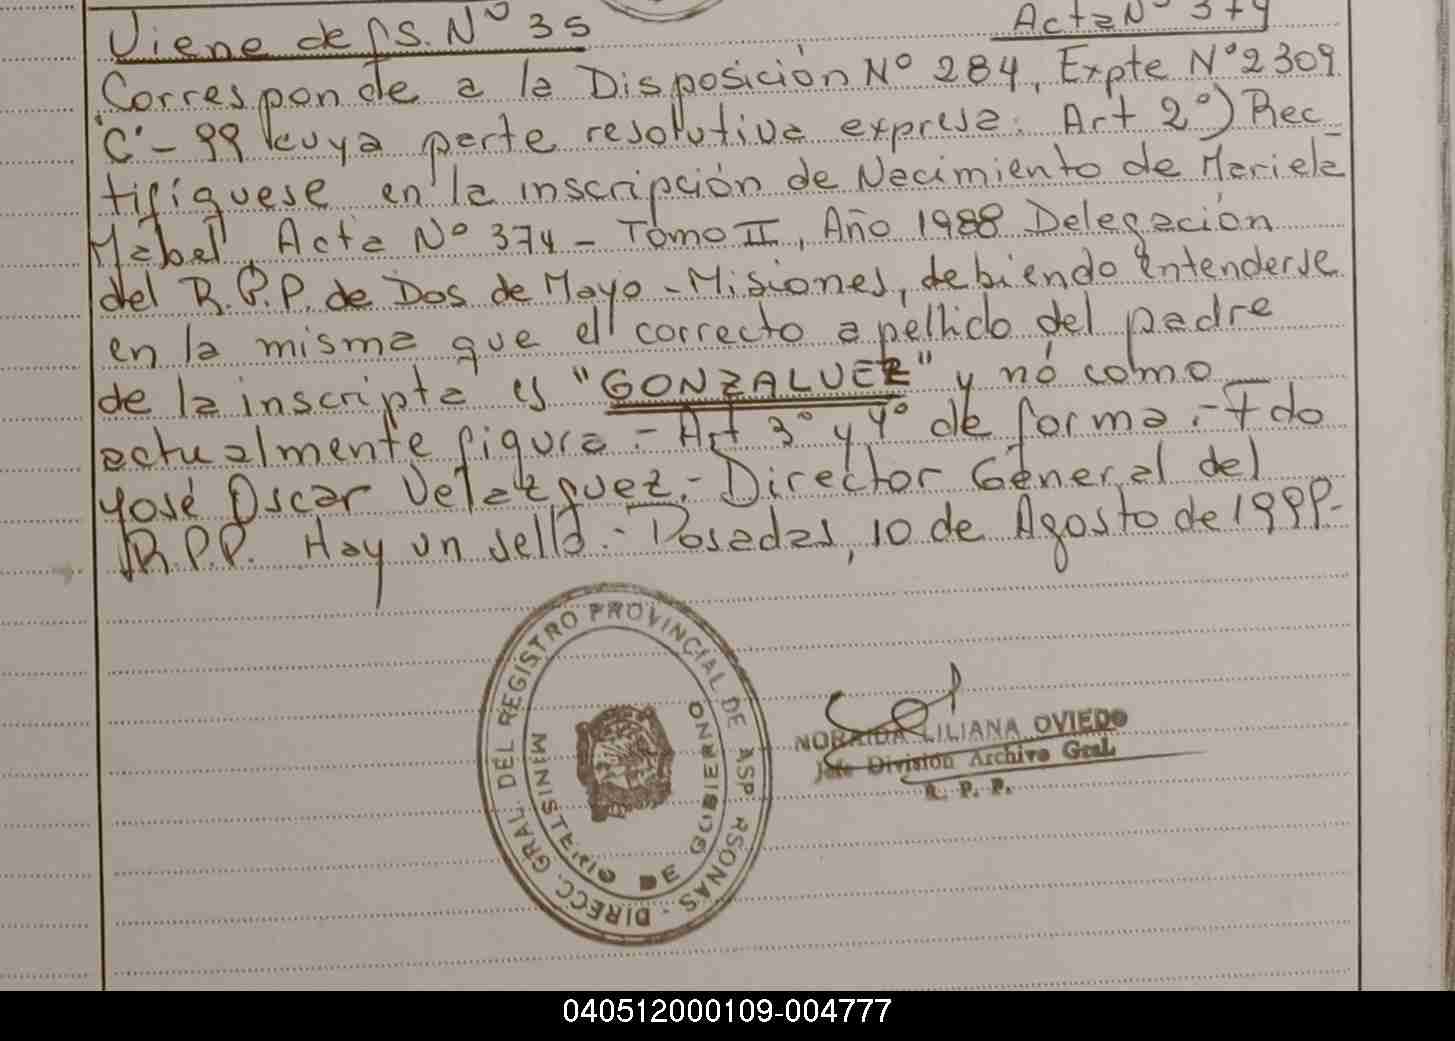 Viene de fs. Nº 35
Acta Nº 374
Corresponde a la Disposición Nº 284, Expte Nº 2309
"C" - 99 cuya parte resolutiva expresa: Art 2º) Rec
tifíquese en la inscripción de Nacimiento de Mariela
Mabel, Acta Nº 374 - Tomo II, Año 1988 Delegación
del R.P.P. de Dos de Mayo - Misiones, debiendo entenderse
en la misma que el correcto apellido del padre
de la inscripta es "GONZALVEZ" y nó como
actualmente figura.- Art 3º y 4º de forma.- Fdo
José Oscar Velazquez.- Director General del
R.P.P. Hay un sello.- Posadas, 10 de Agosto de 1999.-
DIRECC. GRAL. DEL REGISTRO PROVINCIAL DE ASP RSONAS -
MINISTERIO DE GOBIERNO
NORAIDA LILIANA OVIEDO
Jefe División Archivo Gral.
R. P. P.
040512000109-004777